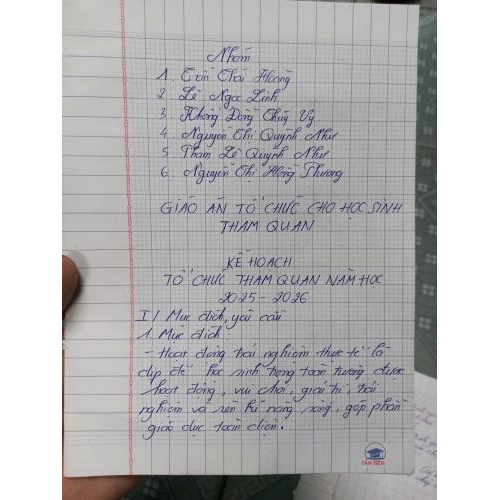 Nhóm
1. Trần Thái Hoàng
2. Lê Ngọc Linh
3. Khổng Đông Thúy Vy
4. Nguyễn Thị Quỳnh Như
5. Phạm Lê Quỳnh Như
6. Nguyễn Thị Hồng Phương
GIÁO ÁN TỔ CHỨC CHO HỌC SINH
THAM QUAN
KẾ HOẠCH
TỔ CHỨC THAM QUAN NĂM HỌC
2025 - 2026
I/ Mục đích, yêu cầu
1. Mục đích:
- Hoạt động trải nghiệm thực tế là
dịp để học sinh trong toàn trường được
hoạt động, vui chơi, giải trí, trải
nghiệm và rèn kĩ năng sống, góp phần
giáo dục toàn diện.
TÂN TIẾN